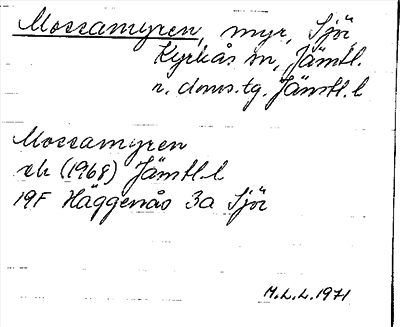 Mossamyren, myr, Sjör
Kyrkås sn, Jämtl.
n. doms.tg. Jämtl. l
Mossamyren
ek (1968) Jämtl. l
19F Häggenås 3a Sjör
M.L.L. 1971